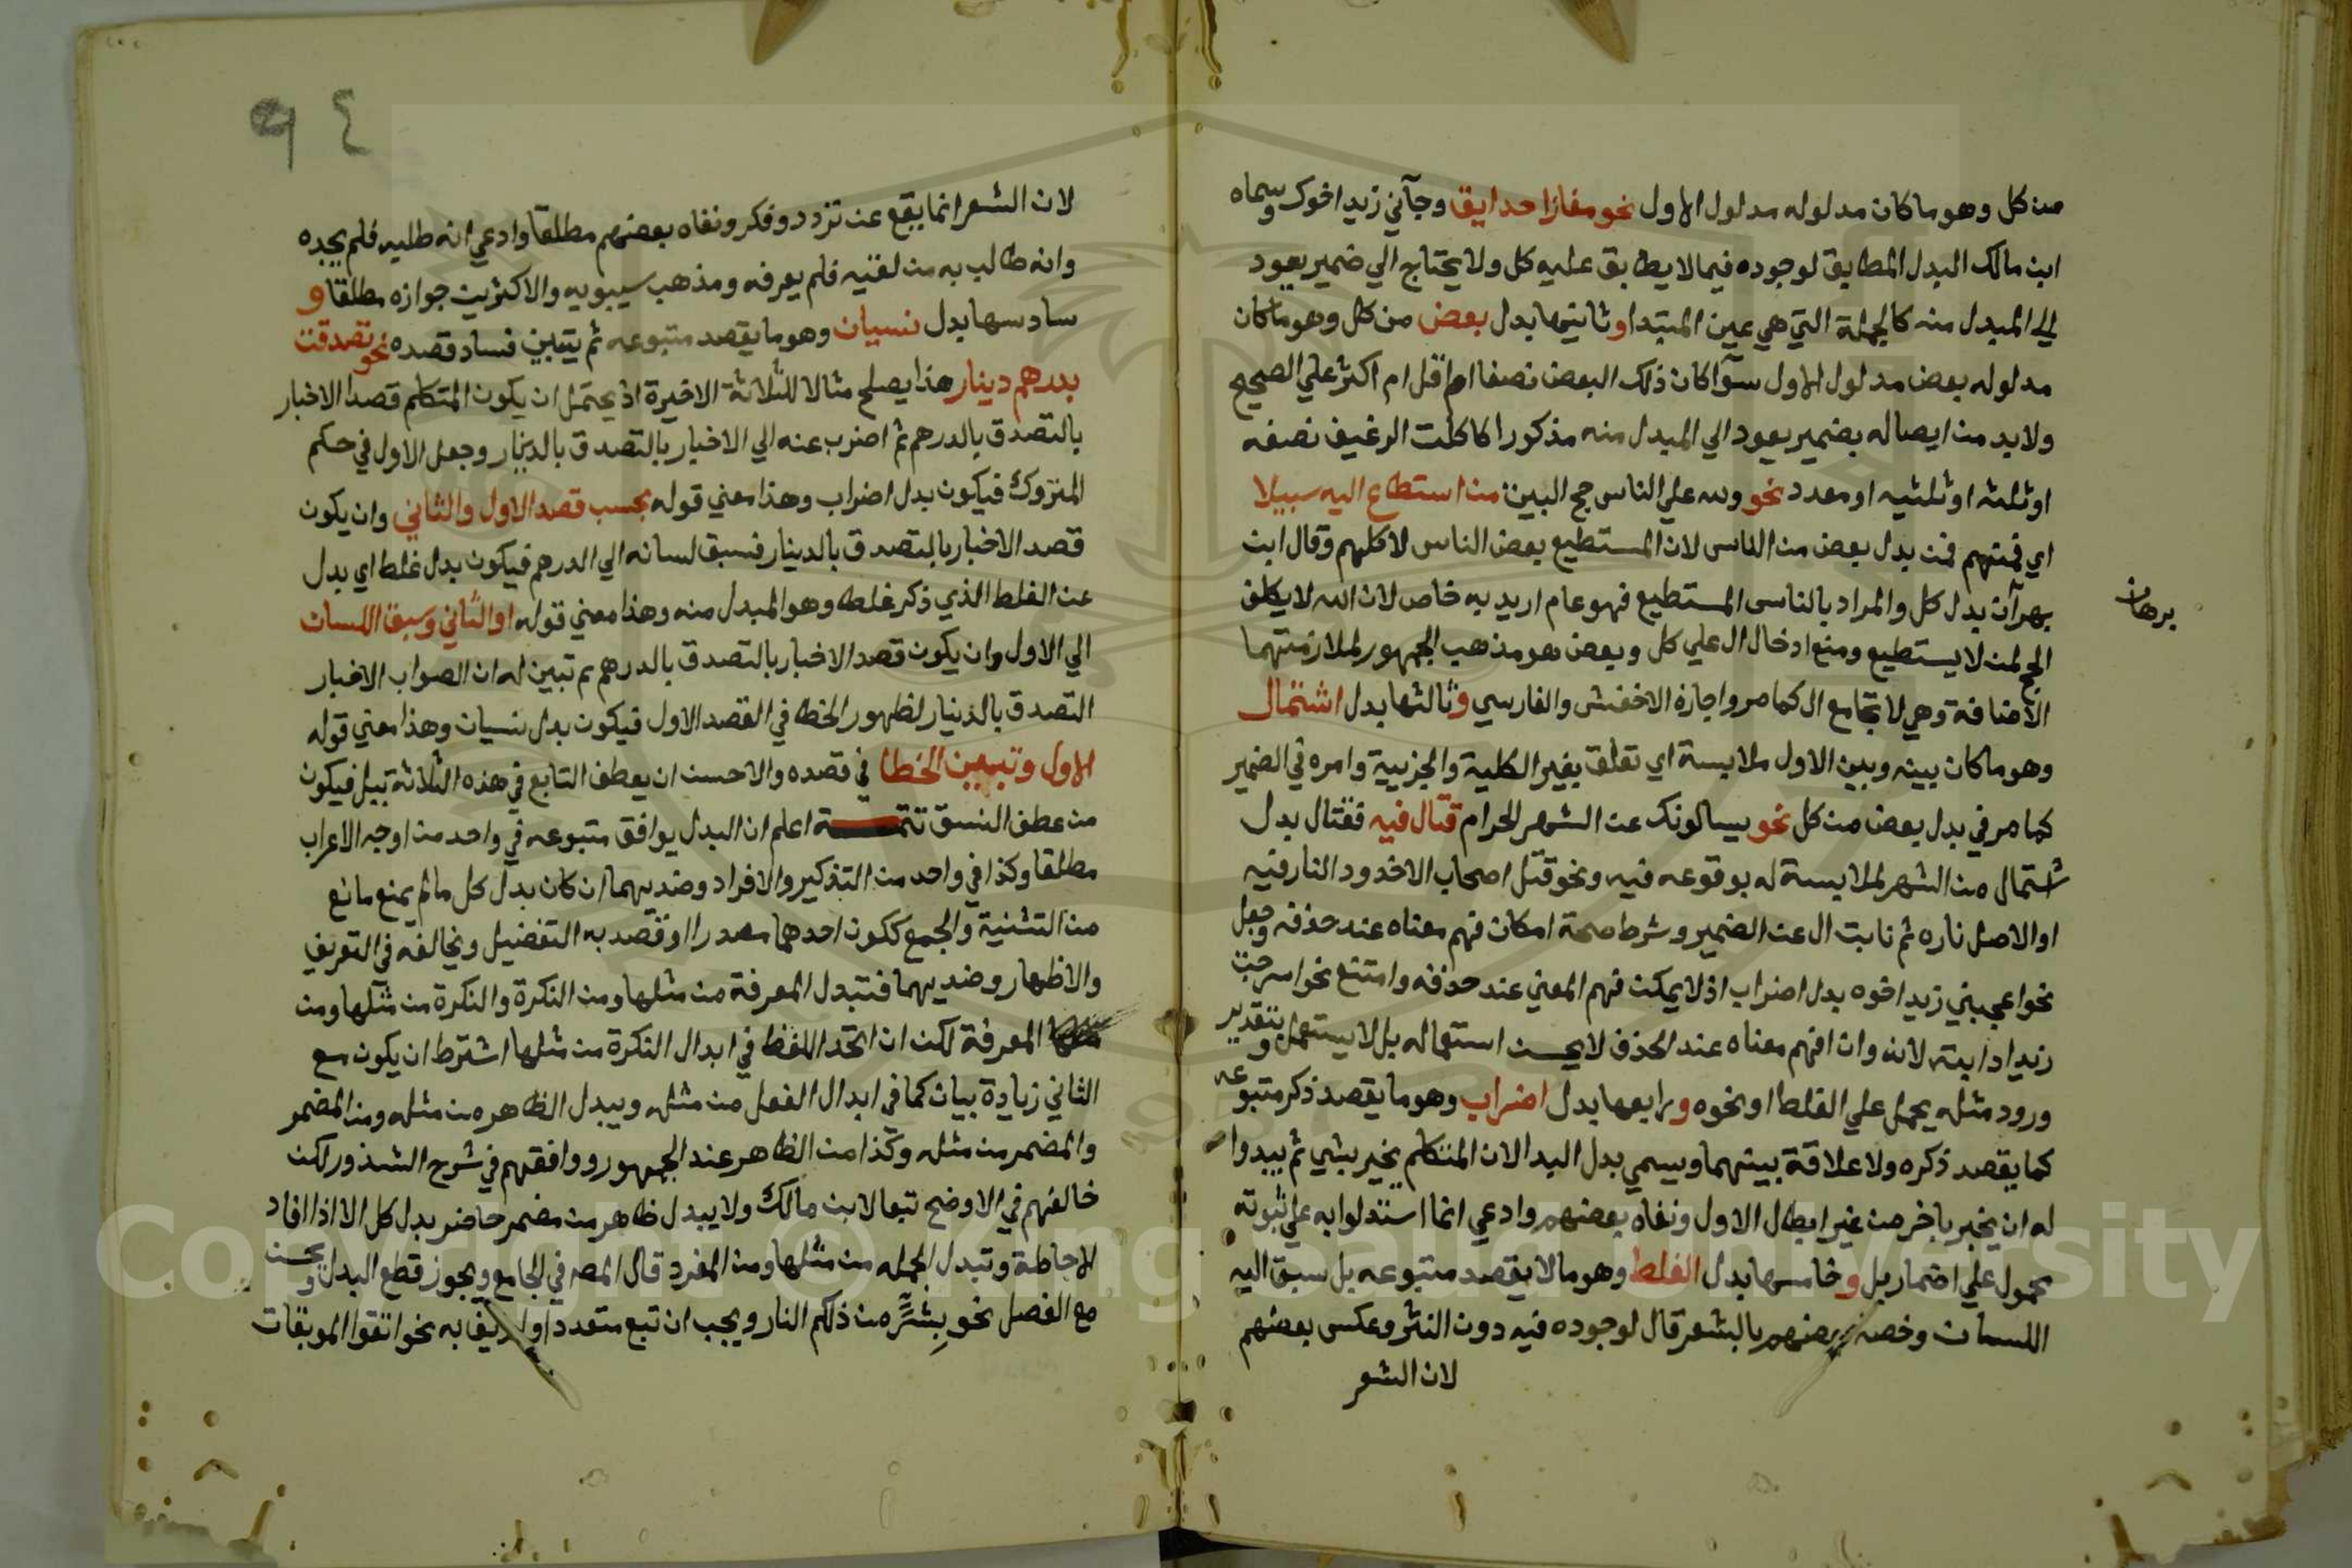 من كل وهو ما كان مدلوله مدلول الاول نحو مفازا حدايق وجآني زيد اخوك وسماه
ابن مالك البدل المطابق لوجوده فيما لا يطابق عليه كل ولا يحتاج الي ضمير يعود
الي المبدل منه كالجملة التي هي عين المبتدا وثانيها بدل بعض من كل وهو ما كان
مدلوله بعض مدلول الاول سوآ كان ذلك البعض نصفا ام اقل ام اكثر علي الصحيح
ولا بد من ايصاله بضمير يعود الي المبدل منه مذكورا كاكلت الرغيف نصفه
او ثلثه او ثلثيه او مقدر نحو ولله علي الناس حج البيت من استطاع اليه سبيلا
اي منهم فمن بدل بعض من الناس لان المستطيع بعض الناس لا كلهم وقال ابن
برهان
بهرآن بدل كل والمراد بالناس المستطيع فهو عام اريد به خاص لان الله لا يكلف
الحج لمن لا يستطيع ومنع ادخال ال علي كل وبعض هو مذهب الجمهور لملازمتهما
الاضافة وهي لا تجامع ال كما مر واجازه الاخفش والفارسي وثالثها بدل اشتمال
وهو ما كان بينه وبين الاول ملابسة اي تعلق بغير الكلية والجزيية وامره في الضمير
كما مر في بدل بعض من كل نحو يسالونك عن الشهر الحرام قتال فيه فقتال بدل
اشتمال من الشهر لملابسة له بوقوعه فيه ونحو قتل اصحاب الاخدود النار فيه
او الاصل ناره ثم نابت ال عن الضمير وشرط صحة امكان فهم معناه عند حذفه وجعل
نحو اعجبني زيد اخوه بدل اضراب اذ لا يمكن فهم المعني عند حذفه وامتنع نحو اسرجت
زيدا دابته لانه وان افهم معناه عند الحذف لا يحسن استعماله بل لا يستعمل وبتقدير
ورود مثله يحمل علي الغلط او نحوه ورابعها بدل اضراب وهو ما يقصد ذكر متبوعه
كما يقصد ذكره ولا علاقة بينهما ويسمي بدل البدا لان المتكلم يخبر بشي ثم يبدوا
له ان يخبر باخر من غير ابطال الاول ونفاه بعضهم وادعي انما استدلوا به علي ثبوته
محمول علي اضمار بل وخامسها بدل الغلط وهو ما لا يقصد متبوعه بل سبق اليه
اللسان وخصه بعضهم بالشعر قال لوجوده فيه دون النثر وعكس بعضهم
لان الشعر
٩٤
لان الشعر انما يقع عن تردد وفكر ونفاه بعضهم مطلقا وادعي انه طلبه فلم يجده
وانه طالب به من لقيه فلم يعرفه ومذهب سيبويه والاكثرين جوازه مطلقا و
سادسها بدل نسيان وهو ما يقصد متبوعه ثم يتبين فساد قصده نحو تصدقت
بدرهم دينار هذا يصلح مثالا للثلاثة الاخيرة اذ يحتمل ان يكون المتكلم قصد الاخبار
بالتصدق بالدرهم ثم اضرب عنه الي الاخبار بالتصدق بالدينار وجعل الاول في حكم
المتروك فيكون بدل اضراب وهذا معني قوله بحسب قصد الاول والثاني وان يكون
قصد الاخبار بالتصدق بالدينار فسبق لسانه الي الدرهم فيكون بدل غلط اي بدل
عن الغلط الذي ذكر غلطه وهو المبدل منه وهذا معني قوله او الثاني وسبق اللسان
الي الاول وان يكون قصد الاخبار بالتصدق بالدرهم ثم تبين له ان الصواب الاخبار
التصدق بالدينار لظهور الخطا في القصد الاول فيكون بدل نسيان وهذا معني قوله
الاول وتبيين الخطا في قصده والاحسن ان يعطف التابع في هذه الثلاثة ببل فيكون
من عطف النسق تتمـــة اعلم ان البدل يوافق متبوعه في واحد من اوجه الاعراب
مطلقا وكذا في واحد من التذكير والافراد وضديهما ان كان بدل كل ما لم يمنع مانع
من التثنية والجمع ككون احدهما مصدرا او قصد به التفضيل ويخالفه في التعريف
والاظهار وضديهما فتبدل المعرفة من مثلها ومن النكرة والنكرة من مثلها ومن
المعرفة لكن ان اتحد اللفظ في ابدال النكرة من مثلها اشترط ان يكون مع
الثاني زيادة بيان كما في ابدال الفعل من مثله ويبدل الظاهر من مثله ومن المضمر
والمضمر من مثله وكذا من الظاهر عند الجمهور ووافقهم في شرح الشذور لكن
خالفهم في الاوضح تبعا لابن مالك ولا يبدل ظاهر من مضمر حاضر بدل كل الا اذا افاد
الاحاطة وتبدل الجمله من مثلها ومن المفرد قال المص في الجامع ويجوز قطع البدل ويحسن
مع الفصل نحو بِشَرٍّ من ذلكم النار ويجب ان تبع متعددا ولم يف به نحو اتقوا الموبقات